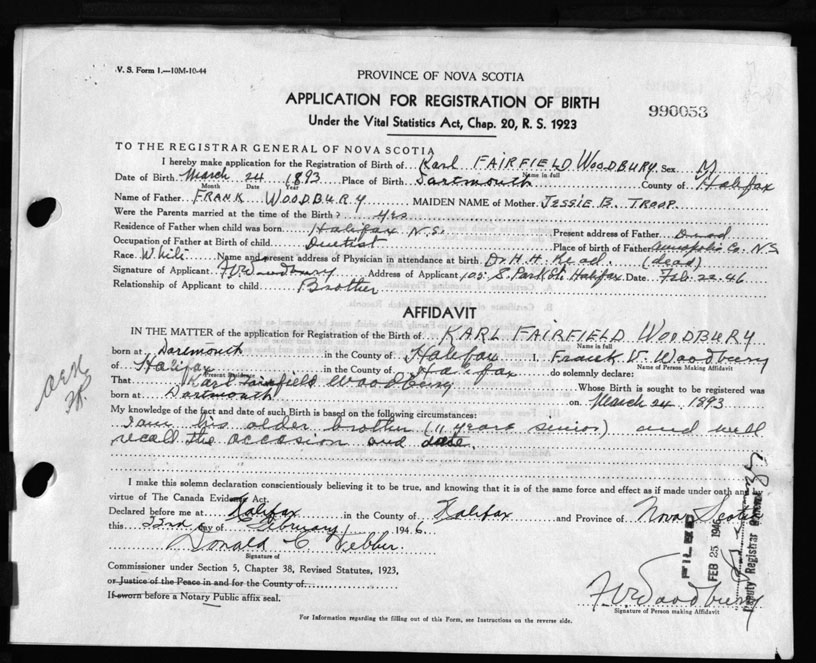 V. S. Form 1.—10M-10-44
PROVINCE OF NOVA SCOTIA
APPLICATION FOR REGISTRATION OF BIRTH
990053
Under the Vital Statistics Act, Chap. 20, R. S. 1923
TO THE REGISTRAR GENERAL OF NOVA SCOTIA
I hereby make application for the Registration of Birth of Karl FAIRFIELD WOODBURY Sex M
Name in full
Date of Birth March 24 1893 Place of Birth Dartmouth County of Halifax
Month Date Year
Name of Father FRANK WOODBURY MAIDEN NAME of Mother JESSIE B. TROOP
Were the Parents married at the time of the Birth? yes
Residence of Father when child was born Halifax N.S. Present address of Father Dead
Occupation of Father at Birth of child Dentist Place of birth of Father Annapolis Co. N.S.
Race White Name and present address of Physician in attendance at birth Dr. H. H. Read (dead)
Signature of Applicant F V Woodbury Address of Applicant S. Park St. Halifax Date Feb. 22-46
Relationship of Applicant to child Brother
AFFIDAVIT
IN THE MATTER of the application for Registration of the Birth of KARL FAIRFIELD WOODBURY
Name in full
born at Dartmouth in the County of Halifax I, Frank V. Woodbury
Name of Person Making Affidavit
of Halifax in the County of Halifax do solemnly declare:
Present Residence
That Karl Fairfield Woodbury Whose Birth is sought to be registered was
born at Dartmouth on March 24 1893
My knowledge of the fact and date of such Birth is based on the following circumstances:
I am his older brother (11 years senior) and well
recall the occasion and date.
I make this solemn declaration conscientiously believing it to be true, and knowing that it is of the same force and effect as if made under oath and
virtue of The Canada Evidence Act.
Declared before me at Halifax in the County of Halifax and Province of Nova Scotia
this 23rd day of February 1946
Donald C Webber
Signature of
Commissioner under Section 5, Chapter 38, Revised Statutes, 1923,
or Justice of the Peace in and for the County of
If sworn before a Notary Public affix seal.
F V Woodbury
Signature of Person making Affidavit
For Information regarding the filling out of this Form, see Instructions on the reverse side.
FILED
FEB 25 1946
Deputy Registrar General